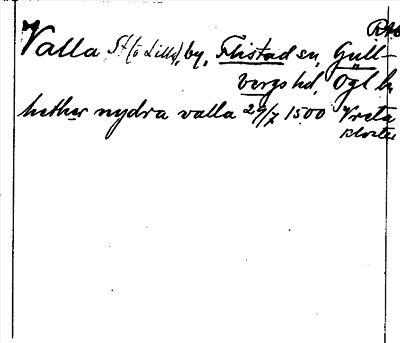 RAp
Valla St (o Lilla), by, Flistad sn, Gull-
bergs hd, Ögl ln
hether nydra valla 29/7 1500 Vreta
kloster